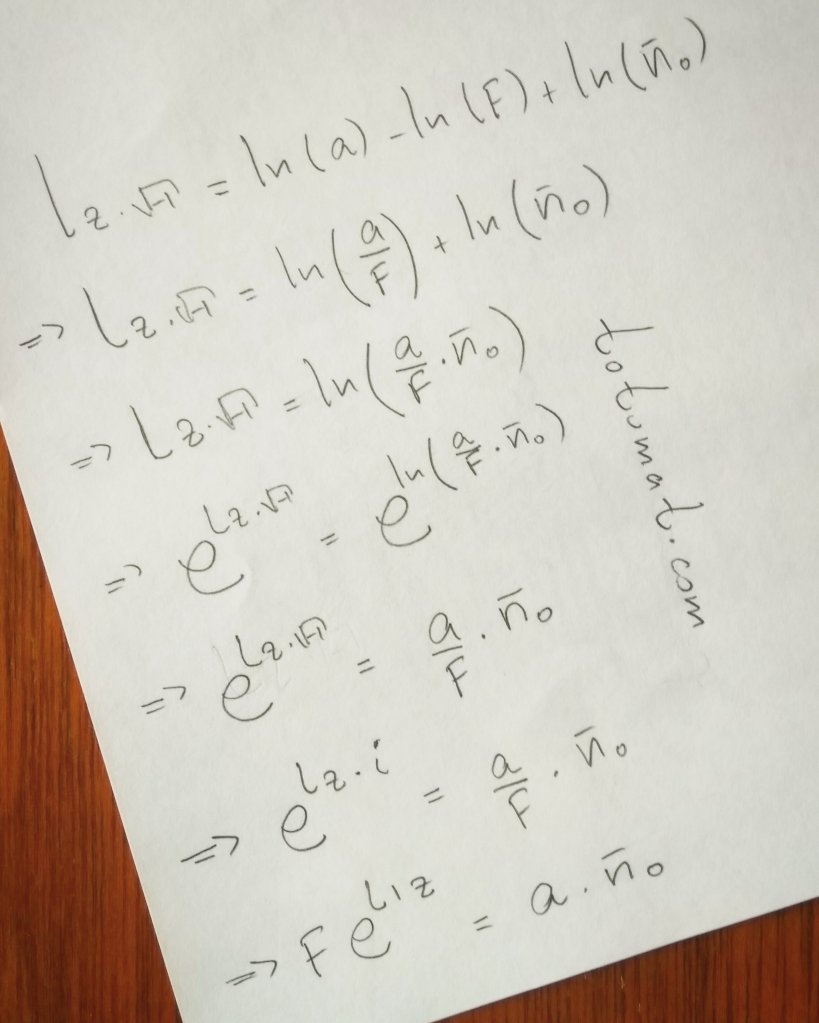 Lz.√-1 = ln(a) - ln(F) + ln(n̄o)
=> Lz.√-1 = ln(a/F) + ln(n̄o)
=> Lz.√-1 = ln(a/F . n̄o)
=> e^Lz.√-1 = e^ln(a/F . n̄o)
=> e^Lz.√-1 = a/F . n̄o
=> e^Lz.i = a/F . n̄o
=> Fe^Liz = a . n̄o
totumat.com